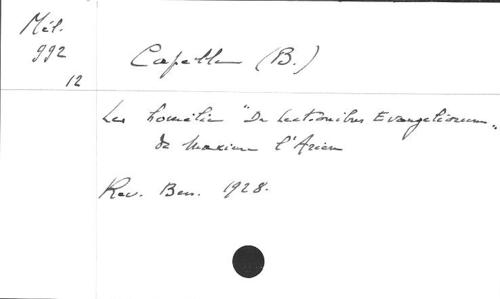 Mél.
992
12
Capelle (B.)
Les homélies "De lectionibus Evangeliorum"
de Maxime l'Arien
Rev. Ben. 1928.